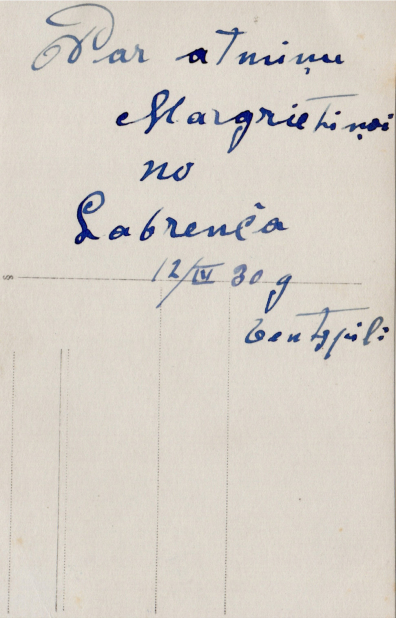 Par atmiņu
Margrietiņai
no
Labrenča
12/IV 30 g
Ventspili